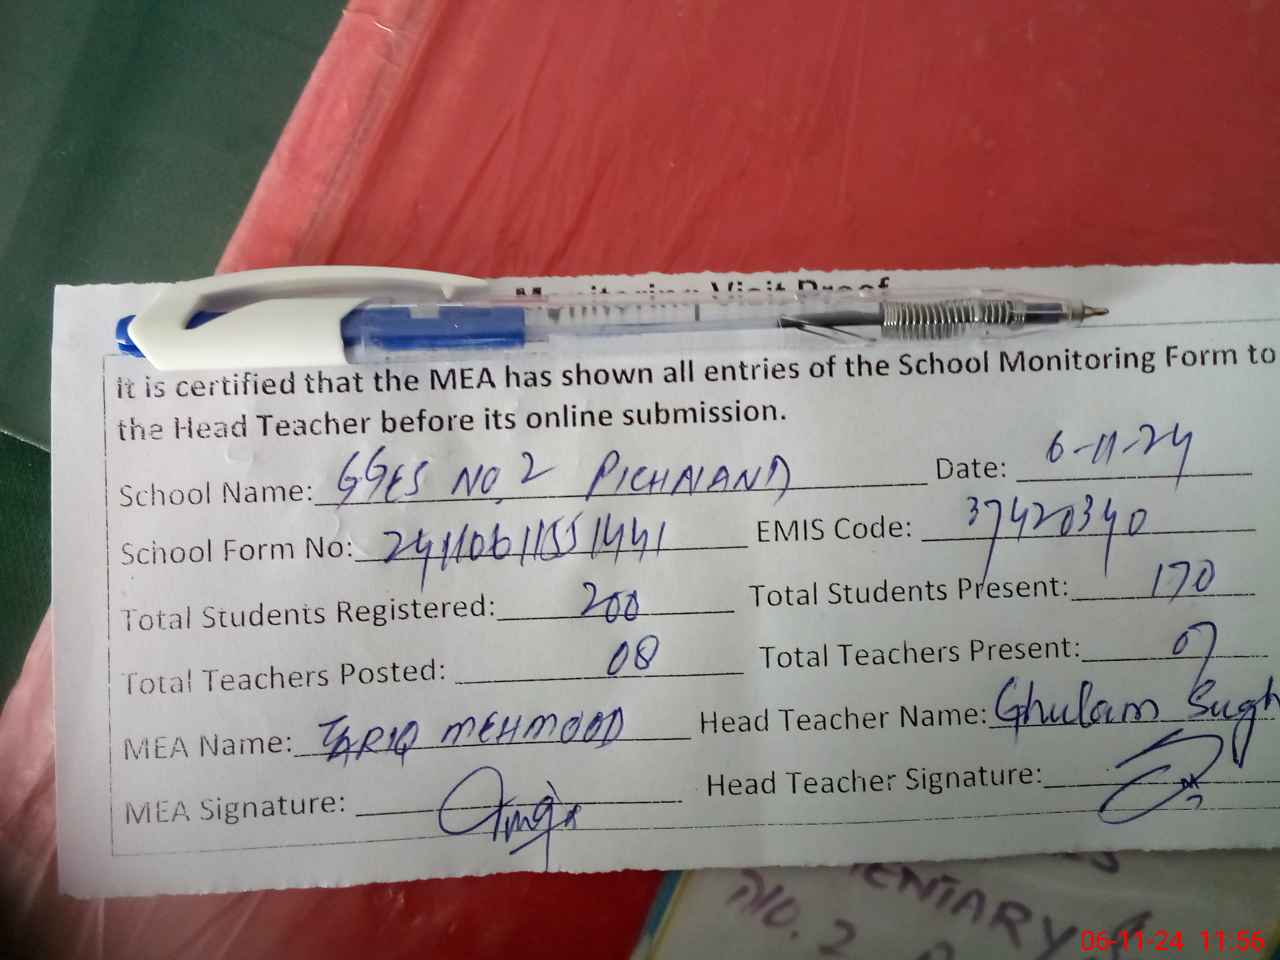 Monitoring Visit Proof
It is certified that the MEA has shown all entries of the School Monitoring Form to
the Head Teacher before its online submission.
School Name: GGES NO. 2 PICHNAND Date: 6-11-24
School Form No: 24110611551441 EMIS Code: 37420340
Total Students Registered: 200 Total Students Present: 170
Total Teachers Posted: 08 Total Teachers Present: 07
MEA Name: TARIQ MEHMOOD Head Teacher Name: Ghulam Sugh
MEA Signature: Head Teacher Signature:
ENTARY
NO. 2
06-11-24 11:56